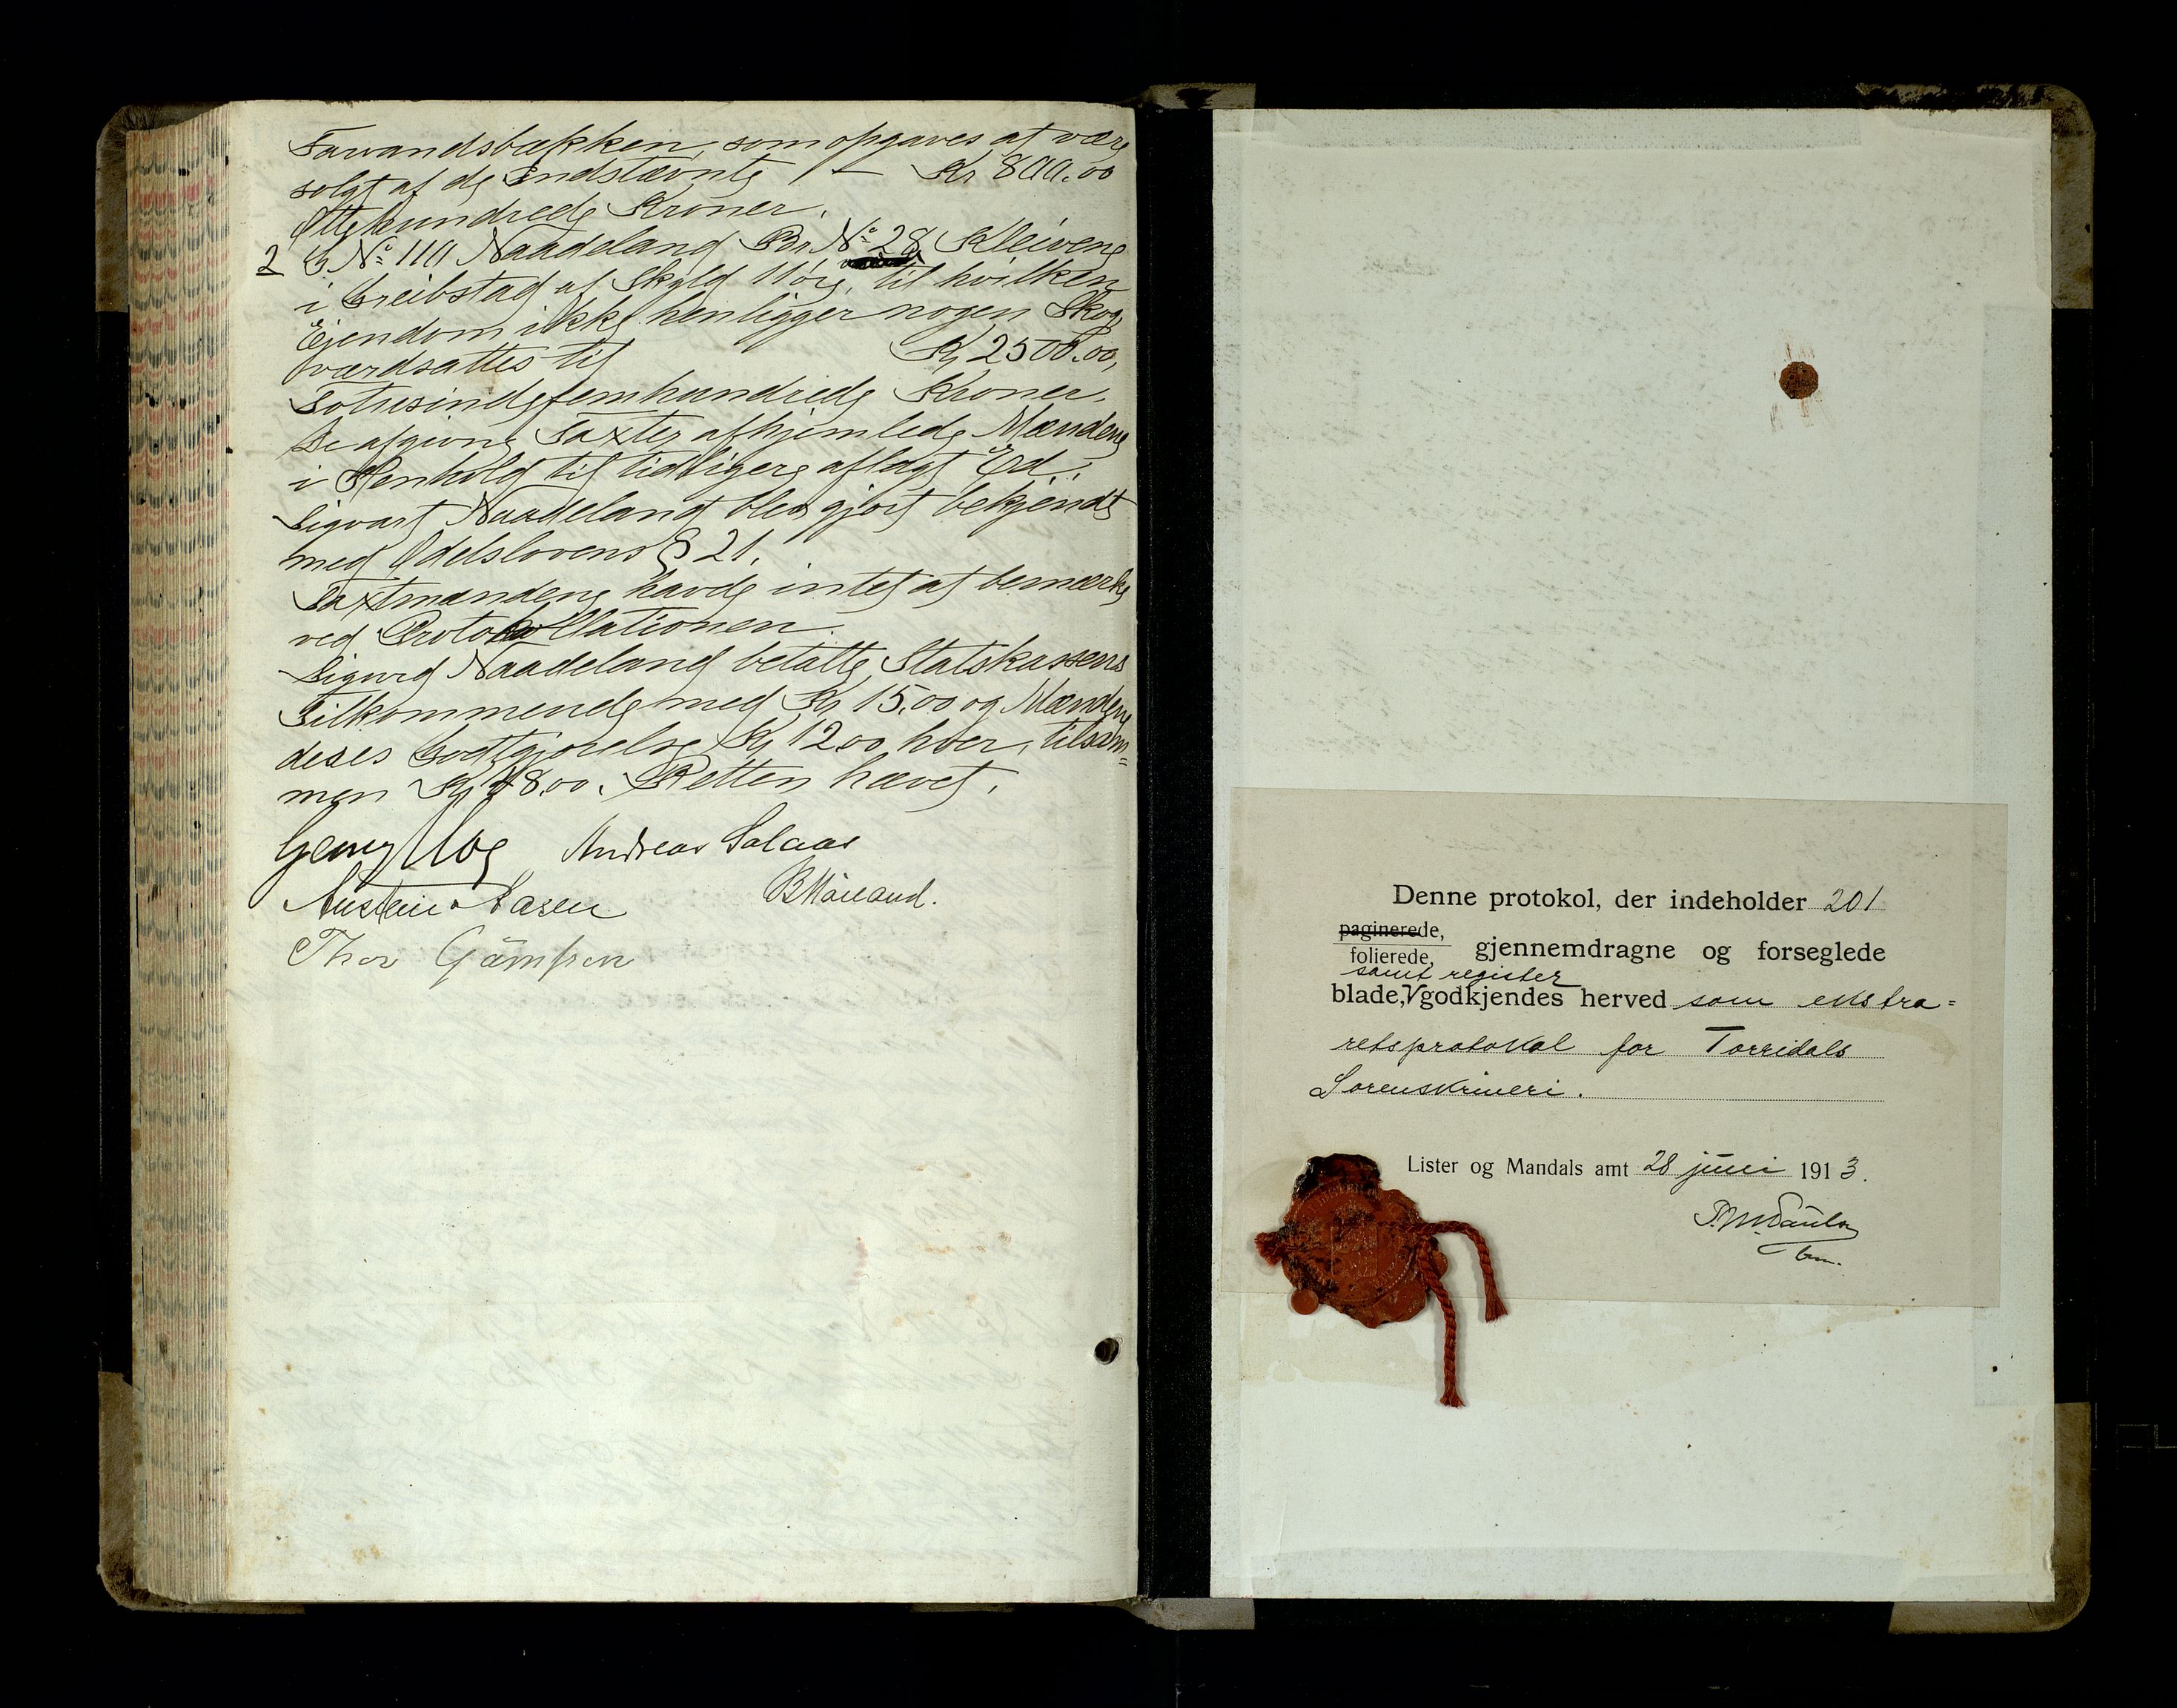 Tarvandsbækken, som opgaves at være
solgt af de Indstævnte /– Kr 800.00
Ottehundrede Kroner.
2 G. N.º 110 Naadeland Br. N.º 28 Kleivene
i Greibstad af Skyld 11 øre, til hvilken
Ejendom ikke henligger nogen Skog,
værdsattes til Kr 2500.00,
Totusindefemhundrede Kroner.
De afgivne Taxter afhjemlede Mændene
i Henhold til tidligere aflagt Ed.
Sigvart Naadeland blev gjort bekjendt
med Odelslovens § 21.
Taxtmændene havde intet at bemærke
ved Protokollationen.
Sigurd Naadeland betalte Statskassens
Tilkommende med Kr 15.00 og Mændene
deres Godtgjørelse Kr 12.00 hver, tilsam=
men Kr 48.00. Retten hævet.
Andreas Solaas
B Håland.
Thor
Denne protokol, der indeholder 201
paginerede,
folierede, gjennemdragne og forseglede
samt register
blade, V godkjendes herved som ekstra=
retsprotokol for Torridals
Sorenskriveri.
Lister og Mandals amt 28 juni 1913.